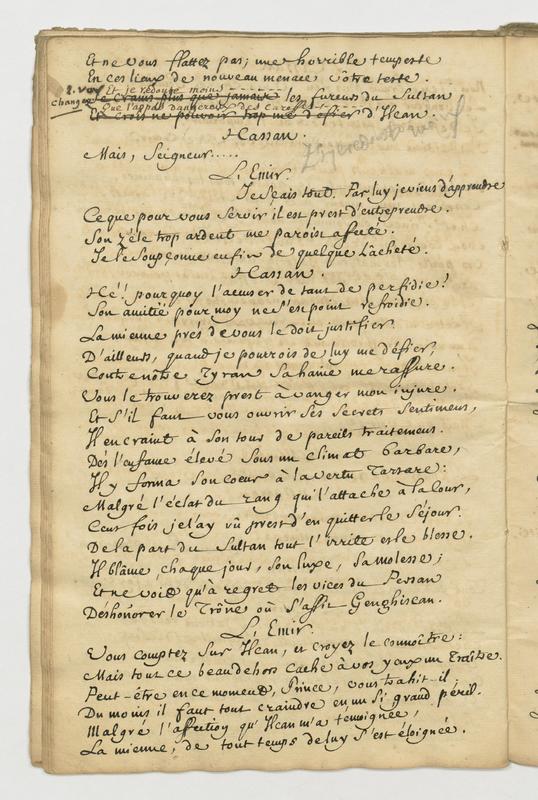 Et ne vous flattez pas; une horrible tempeste
En ces lieux de nouveau menace vôtre teste.
2. vers changez
Et je redoute moins
Je crains plus que jamais les fureurs du Sultan
Que l'appas dangereux des caresses
Et crois ne pouvoir trop me défier d'Hcan.
Hassan.
Mais, Seigneur.....
L'Emir.
Je sçais tout. Par luy je viens d'apprendre
Ce que pour vous servir il est prest d'entreprendre.
Son zéle trop ardent me paroist affecté.
Je le soupçonne enfin de quelque Lâcheté.
Hassan.
Hé! pourquoy l'accuser de tant de perfidie!
Son amitié pour moy ne s'est point refroidie.
La mienne prés de vous le doit justifier.
D'ailleurs, quand je pourrois de luy me défier,
Contre nôtre Tyran sa haine me rassure.
Vous le trouverez prest à vanger mon injure.
Et s'il faut vous ouvrir ses secrets sentimens,
Il en craint à son tour de pareils traitemens.
Dés l'enfance élevé sous un climat barbare,
Il y forma son coeur à la vertu Tartare:
Malgré l'éclat du rang qui l'attache à la Cour,
Cent fois je l'ay vû prest d'en quitter le Séjour.
De la part du Sultan tout l'irrite et le blesse.
Il blâme, chaque jour, son luxe, sa molesse;
Et ne voit qu'à regret les vices du Persan
Déshonorer le Trône où s'assit Genghiscan.
L'Emir.
Vous comptez sur Hcan, et croyez le connoître:
Mais tout ce beau dehors cache à vos yeux un Traître.
Peut-être en ce moment, Prince, vous trahit-il.
Du moins il faut tout craindre en un si grand péril.
Malgré l'affection qu'Hcan m'a temoignée,
La mienne, de tout temps de luy s'est éloignée.